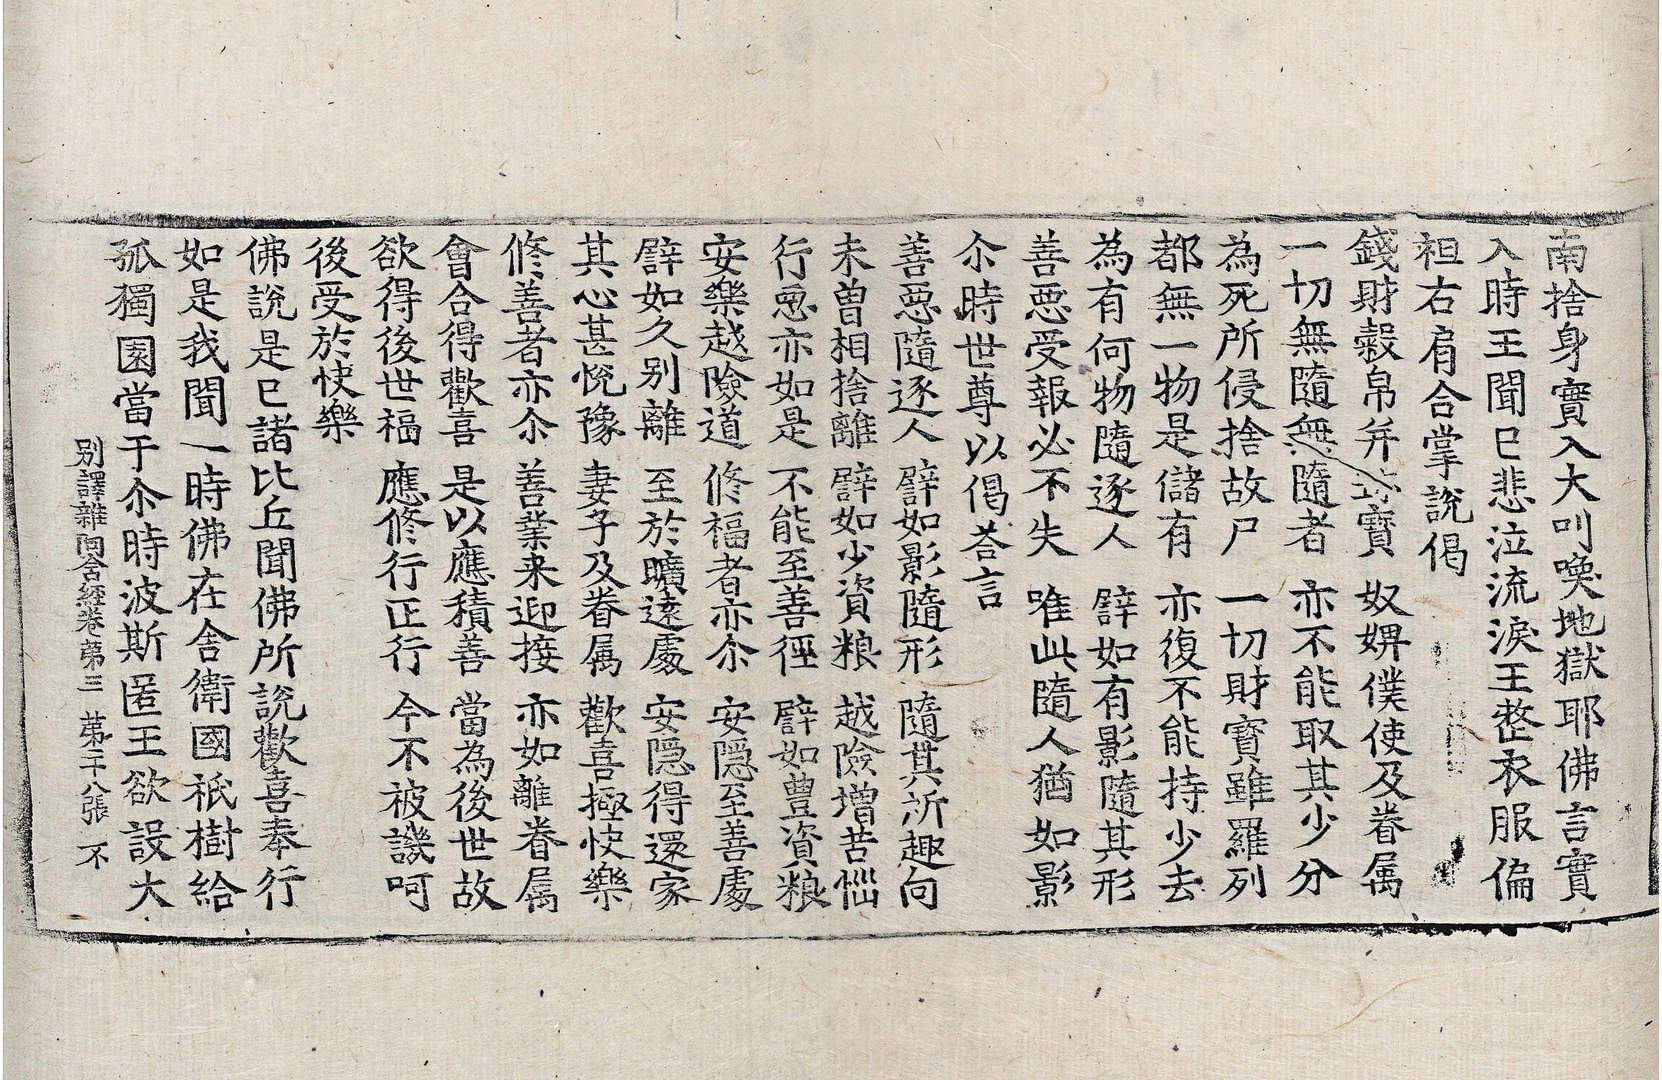 南捨身實入大叫喚地獄耶佛言實
入時王聞已悲泣流淚王整衣服偏
袒右肩合掌說偈
錢財穀帛并珎寶　奴婢僕使及眷属
一切無隨無隨者　亦不能取其少分
為死所侵捨故尸　一切財寶雖羅列
都無一物是儲有　亦復不能持少去
為有何物隨逐人　譬如有影隨其形
善惡受報必不失　唯此隨人猶如影
尒時世尊以偈荅言
善惡隨逐人　譬如影隨形　隨其所趣向
未曾相捨離　譬如少資粮　越險增苦惱
行惡亦如是　不能至善徑　譬如豊資粮
安樂越險道　俢福者亦尒　安隱至善處
譬如久别離　至於曠遠處　安隱得還家
其心甚悅豫　妻子及眷属　歡喜極快樂
修善者亦尒　善業来迎接　亦如離眷属
會合得歡喜　是以應積善　當為後世故
欲得後世福　應俢行正行　今不被譏呵
後受於快樂
佛說是已諸比丘聞佛所說歡喜奉行
如是我聞一時佛在舎衛國祇樹給
孤獨園當于尒時波斯匿王欲設大
别譯雜阿含經卷苐三　苐二十八張　不